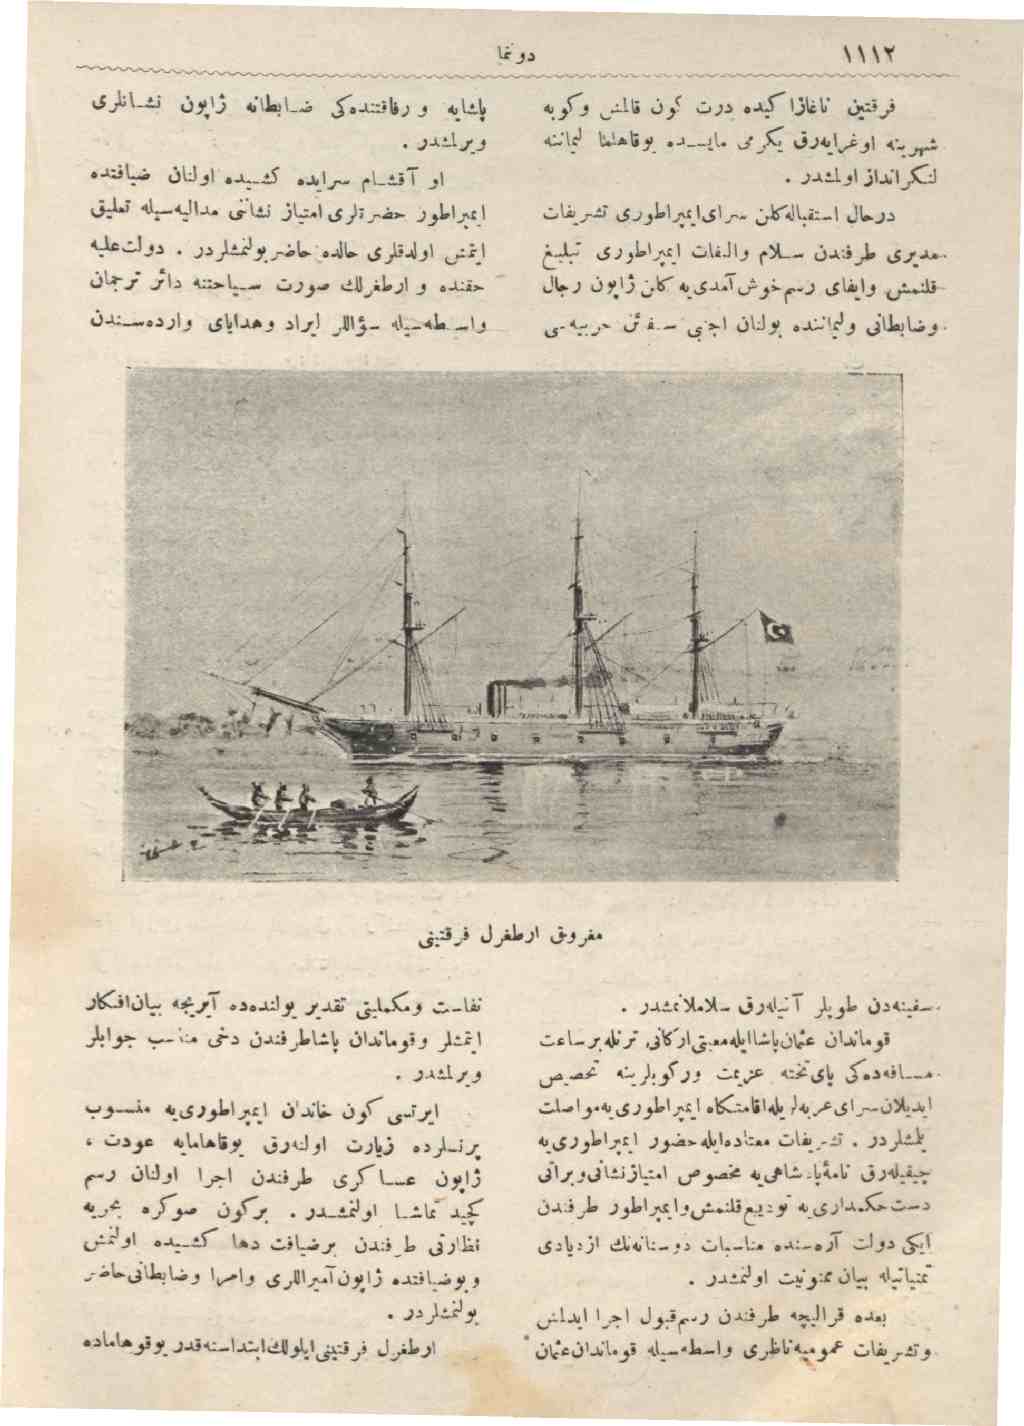 ١١١٢
دونما
فرقتین ناغازا کیده درت کون قالمش وکوبه
شهرینه اوغرایه‌رق یکرمی مایسده یوقاهاما لیماننه
لنکرانداز اولمشدر .
درحال استقباله‌کلن سرای‌ایمپراطوری تشریفات
مدیری طرفندن سلام والتفات ایمپراطوری تبلیغ
قلنمش وایفای رسم‌خوش‌آمدی‌یه کلن ژاپون رجال
وضابطانی ولیماننده بولنان اجنبی سفائن حربیه‌سی
پاشایه و رفاقتنده‌کی ضابطانه ژاپون نشانلری
ویرلمشدر .
او آقشام سرایده کشیده اولنان ضیافتده
ایمپراطور حضرتلری امتیاز نشاننی مدالیه‌سیله تعلیق
ایتمش اولدقلری حالده حاضر بولنمشلردر . دولت‌علیه
حقنده و ارطغرلك صورت سیاحتنه دائر ترجمان
واسطه‌سیله سؤاللر ایراد وهدایای وارده‌سندن
مغروق ارطغرل فرقتینی
سفینه‌دن طوپلر آتیله‌رق سلاملانمشدر .
قوماندان عثمان‌پاشاایله‌معیتی‌ارکانی، ترنله‌برساعت
مسافه‌ده‌کی پای‌تخته عزیمت ورکوبلرینه تخصیص
ایدیلان‌سرای‌عربه‌لریله‌اقامتکاه ایمپراطوری‌یه‌مواصلت
ایلمشلردر . تشریفات معتاده‌ایله‌حضور ایمپراطوری‌یه
چیقیله‌رق نامۀپادشاهی‌یه مخصوص امتیازنشانی‌وبراتی
دست‌حکمداری‌یه تودیع‌قلنمش‌وایمپراطور طرفندن
ایکی دولت آره‌سنده مناسبات دوستانه‌نك ازدیادی
تمنیاتیله بیان ممنونیت اولنمشدر .
بعده قرالیچه طرفندن رسم‌قبول اجرا ایدلمش
وتشریفات عمومیه‌ناظری واسطه‌سیله قوماندان‌عثمان
نفاست ومکملیتی تقدیر یولنده‌ده آیریجه بیان‌افکار
ایتمشلر وقوماندان پاشاطرفندن دخی مناسب جوابلر
ویرلمشدر .
ایرتسی کون خاندان ایمپراطوری‌یه منسوب
پرنسلرده زیارت اولنه‌رق یوقاهامایه عودت ،
ژاپون عساکری طرفندن اجرا اولنان رسم
کچید تماشا اولنمشدر . برکون صوکره بحریه
نظارتی طرفندن برضیافت دها کشیده اولنمش
وبوضیافتده ژاپون‌آمیراللری وامرا وضابطانی‌حاضر
بولنمشلردر .
ارطغرل فرقتینی‌ایلولك‌ابتداسنه‌قدر یوقوهاماده